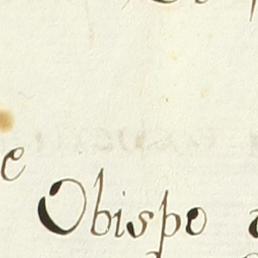 e
Obispo